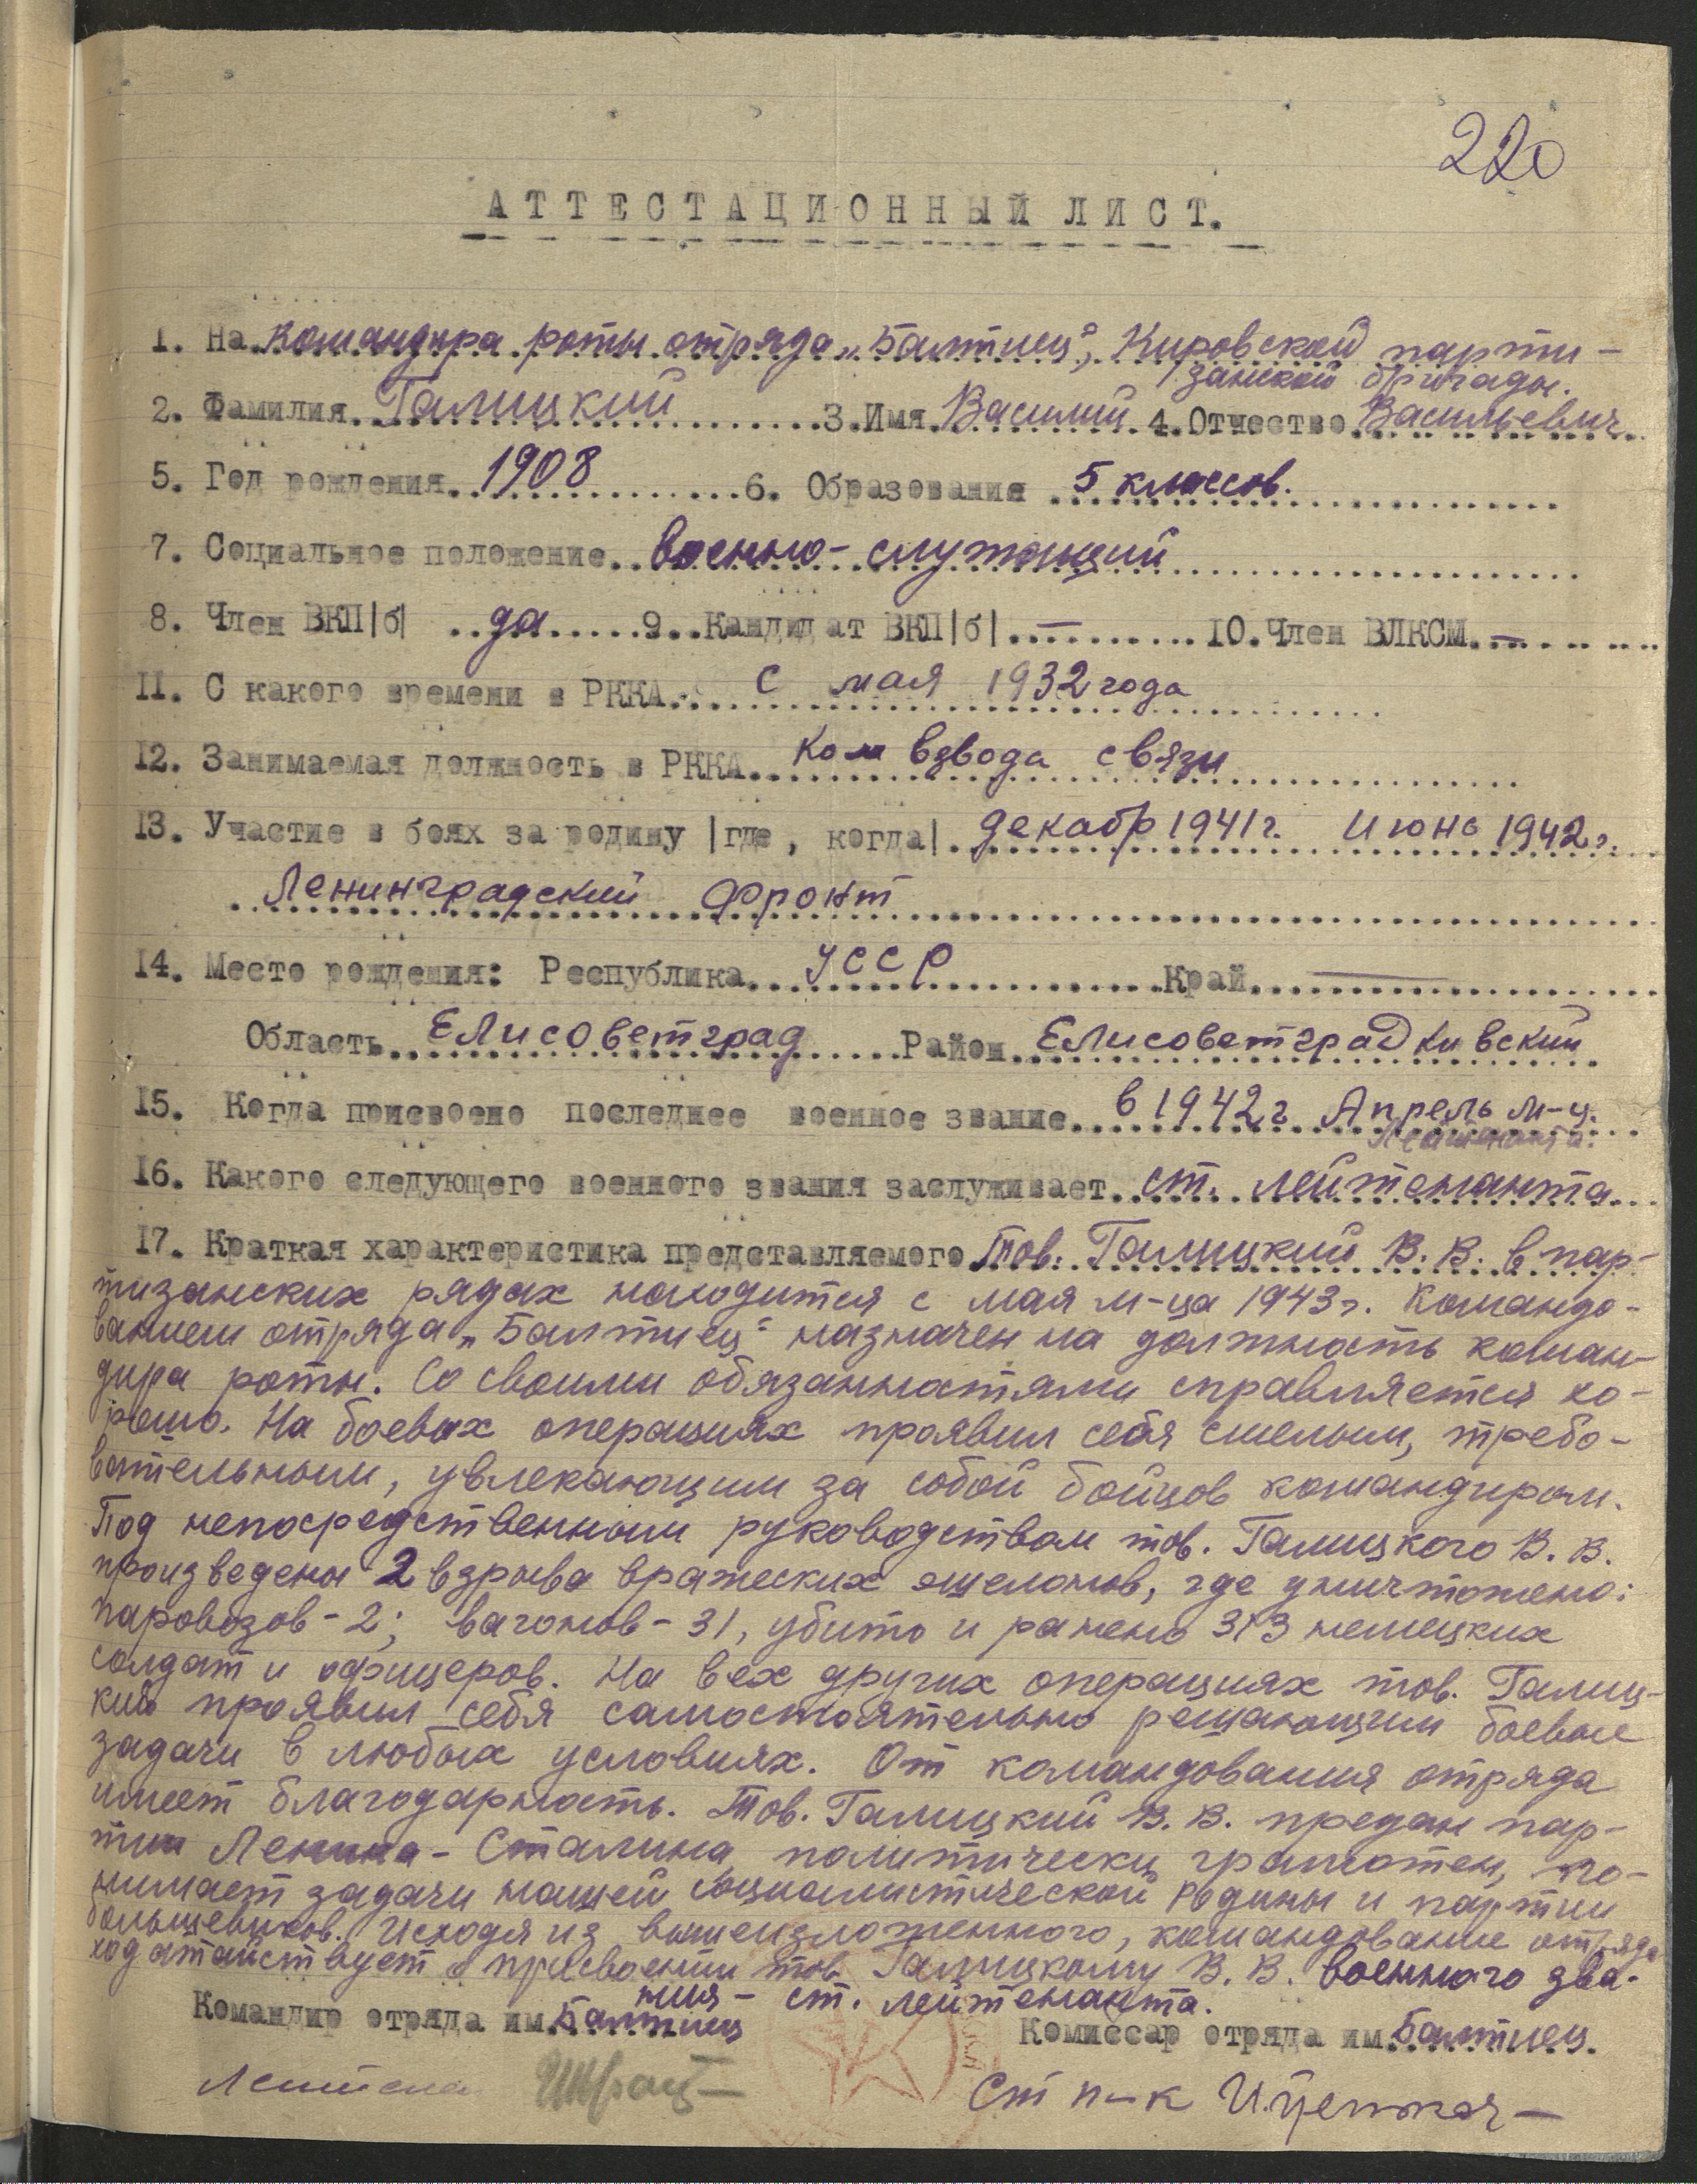 220
АТТЕСТАЦИОННЫЙ ЛИСТ.
1. На командира роты отряда „Балтиец“, Кировской парти-
занской бригады.
2. Фамилия Галицкий 3. Имя Василий 4. Отчество Васильевич
5. Год рождения 1908 6. Образования 5 классов.
7. Социальное положение военно-служащий
8. Член ВКП|б| да 9. Кандидат ВКП|б| — 10. Член ВЛКСМ —
11. С какого времени в РККА с мая 1932 года
12. Занимаемая должность в РККА Ком взвода связи
13. Участие в боях за родину |где, когда| декабр 1941 г. Июнь 1942 г.
Ленинградский Фронт
14. Место рождения: Республика УССР Край —
Область Елисоветград Район Елисоветградкивский
15. Когда присвоено последнее военное звание в 1942 г Апрель м-ц.
Лейтенанта.
16. Какого следующего военного звания заслуживает ст. лейтенанта
17. Краткая характеристика представляемого Тов. Галицкий В. В. в пар-
тизанских рядах находится с мая м-ца 1943 г. Командо-
ванием отряда „Балтиец“ назначен на должность коман-
дира роты. Со своими обязанностями справляется хо-
рошо. На боевых операциях проявил себя смелым, требо-
вательным, увлекающим за собой бойцов командиром.
Под непосредственным руководством тов. Галицкого В. В.
произведены 2 взрыва вражеских эшелонов, где уничтожено:
паровозов - 2; вагонов - 31, убито и ранено 313 немецких
солдат и офицеров. На всех других операциях тов. Галиц-
кий проявил себя самостоятельно решающим боевые
задачи в любых условиях. От командования отряда
имеет благодарность. Тов. Галицкий В. В. предан пар-
тии Ленина-Сталина, политически грамотен, по-
нимает задачи нашей социалистической Родины и партии
большевиков. Исходя из вышеизложенного, командование отряда
ходатайствует о присвоении тов. Галицкому В. В. военного зва-
ния - ст. лейтенанта.
Командир отряда им Балтиец
Комиссар отряда им Балтиец.
Ст п-к